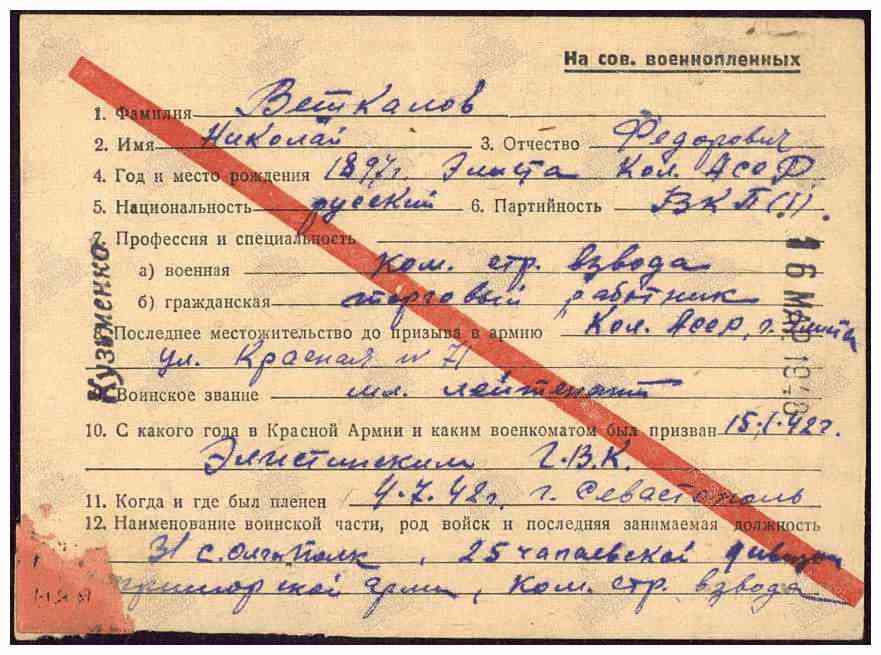 На сов. военнопленных
1. Фамилия Веткалов
2. Имя Николай 3. Отчество Федорович
4. Год и место рождения 1897г. Элиста Кал. АССР
5. Национальность русский 6. Партийность ВКП(б).
7. Профессия и специальность
а) военная ком. стр. взвода
б) гражданская торговый работник
Последнее местожительство до призыва в армию Кал. Асср, г. Элиста
ул. Красная № 71
9. Воинское звание мл. лейтенант
10. С какого года в Красной Армии и каким военкоматом был призван 15.I.42г.
Элистинским Г.В.К.
11. Когда и где был пленен 4.7.42г. г. Севастополь
12. Наименование воинской части, род войск и последняя занимаемая должность
31 полк, 25 чапаевской дивизии
приморской армии, ком. стр. взвода
Кузьменко
16 МАР